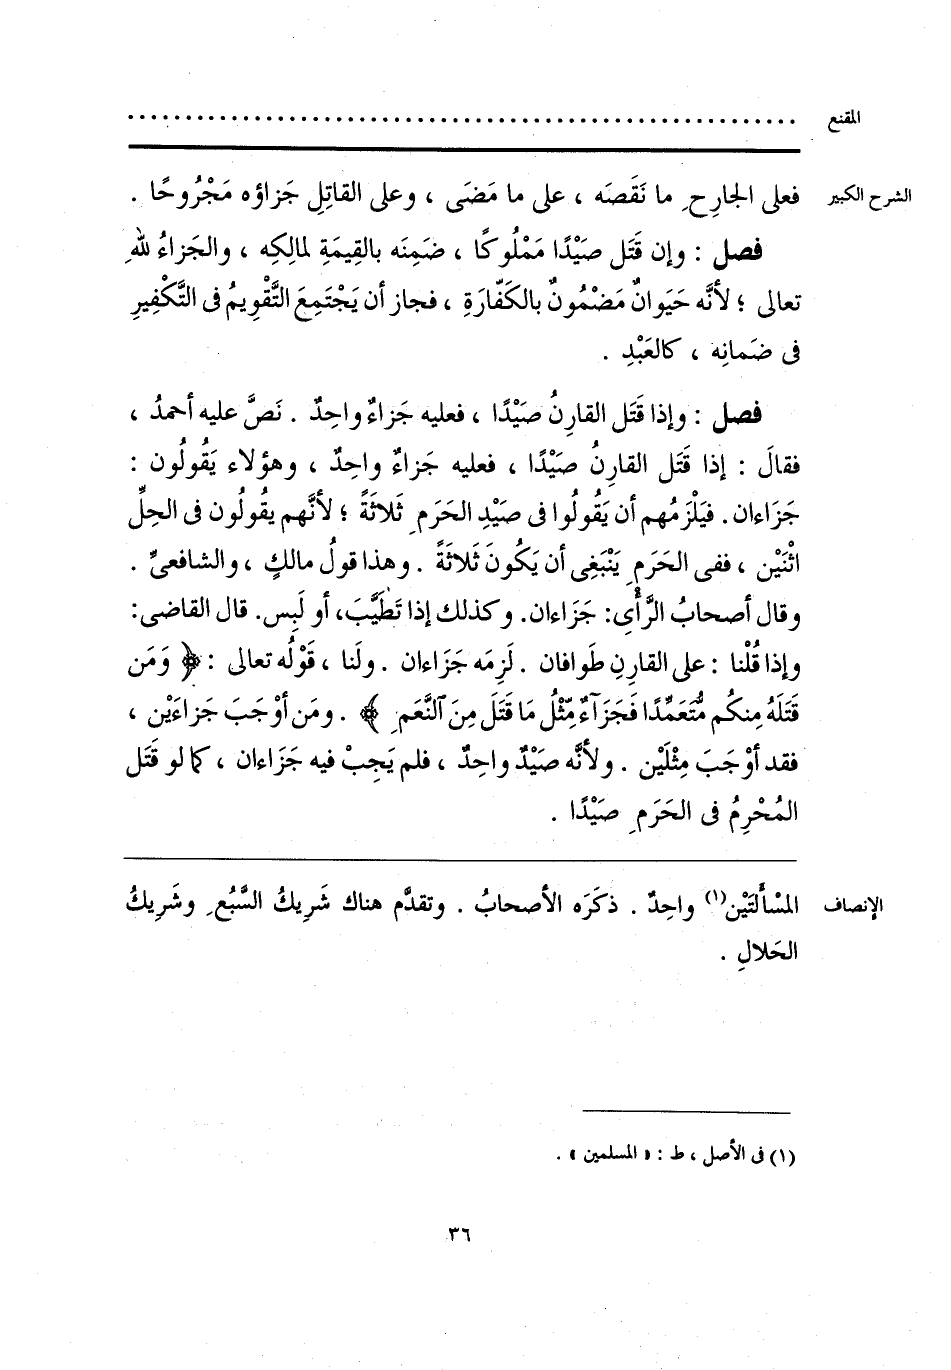 المقنع ............................................................
الشرح الكبير فعلى الجارِحِ ما نَقَصَه ، على ما مَضَى ، وعلى القاتِلِ جَزاؤه مَجْرُوحًا .
فصل : وإن قَتَل صيْدًا مَمْلُوكًا ، ضَمِنَه بالقِيمَةِ لمالِكِه ، والجَزاءُ للهِ
تعالى ؛ لأنَّه حَيَوانٌ مَضْمُونٌ بالكَفّارَةِ ، فجاز أن يَجْتَمِعَ التَّقْوِيمُ فى التَّكْفِيرِ
فى ضَمانِه ، كالعَبْدِ .
فصل : وإذا قَتَل القارِنُ صَيْدًا ، فعليه جَزاءٌ واحِدٌ . نَصَّ عليه أحمدُ ،
فقالَ : إذا قَتَل القارِنُ صَيْدًا ، فعليه جَزاءٌ واحِدٌ ، وهؤلاء يَقُولُون :
جَزَاءان. فيَلْزَمُهم أن يَقُولُوا فى صَيْدِ الحَرَمِ ثَلاثَةً ؛ لأنَّهم يقُولُون فى الحِلِّ
اثْنَيْن ، ففى الحَرَمِ يَنْبَغِى أن يَكُونَ ثَلاثَةً . وهذا قولُ مالكٍ ، والشافعىِّ .
وقال أصحابُ الرَّأْىِ: جَزَاءان. وكذلك إذا تَطَيَّبَ، أو لَبِس. قال القاضى:
وإذا قُلْنا : على القارِنِ طَوافان . لَزِمَه جَزَاءان . ولَنا ، قَوْلُه تعالى : ﴿ وَمَن
قَتَلَهُ مِنكُم مُّتَعَمِّدًا فَجَزَآءٌ مِّثْلُ مَا قَتَلَ مِنَ ٱلنَّعَمِ ﴾ . ومَن أوْجَبَ جَزاءَيْن ،
فقد أوْجَبَ مِثْلَيْن . ولأنَّه صَيْدٌ واحِدٌ ، فلم يَجِبْ فيه جَزَاءان ، كما لو قَتَل
المُحْرِمُ فى الحَرَمِ صَيْدًا .
الإنصاف المْسْألَتَيْن(١) واحِدٌ . ذكَرَه الأصحابُ . وتقدَّم هناك شَرِيكُ السَّبُعِ وشَرِيكُ
الحَلالِ .
(١) فى الأصل ، ط : « المسلمين » .
٣٦